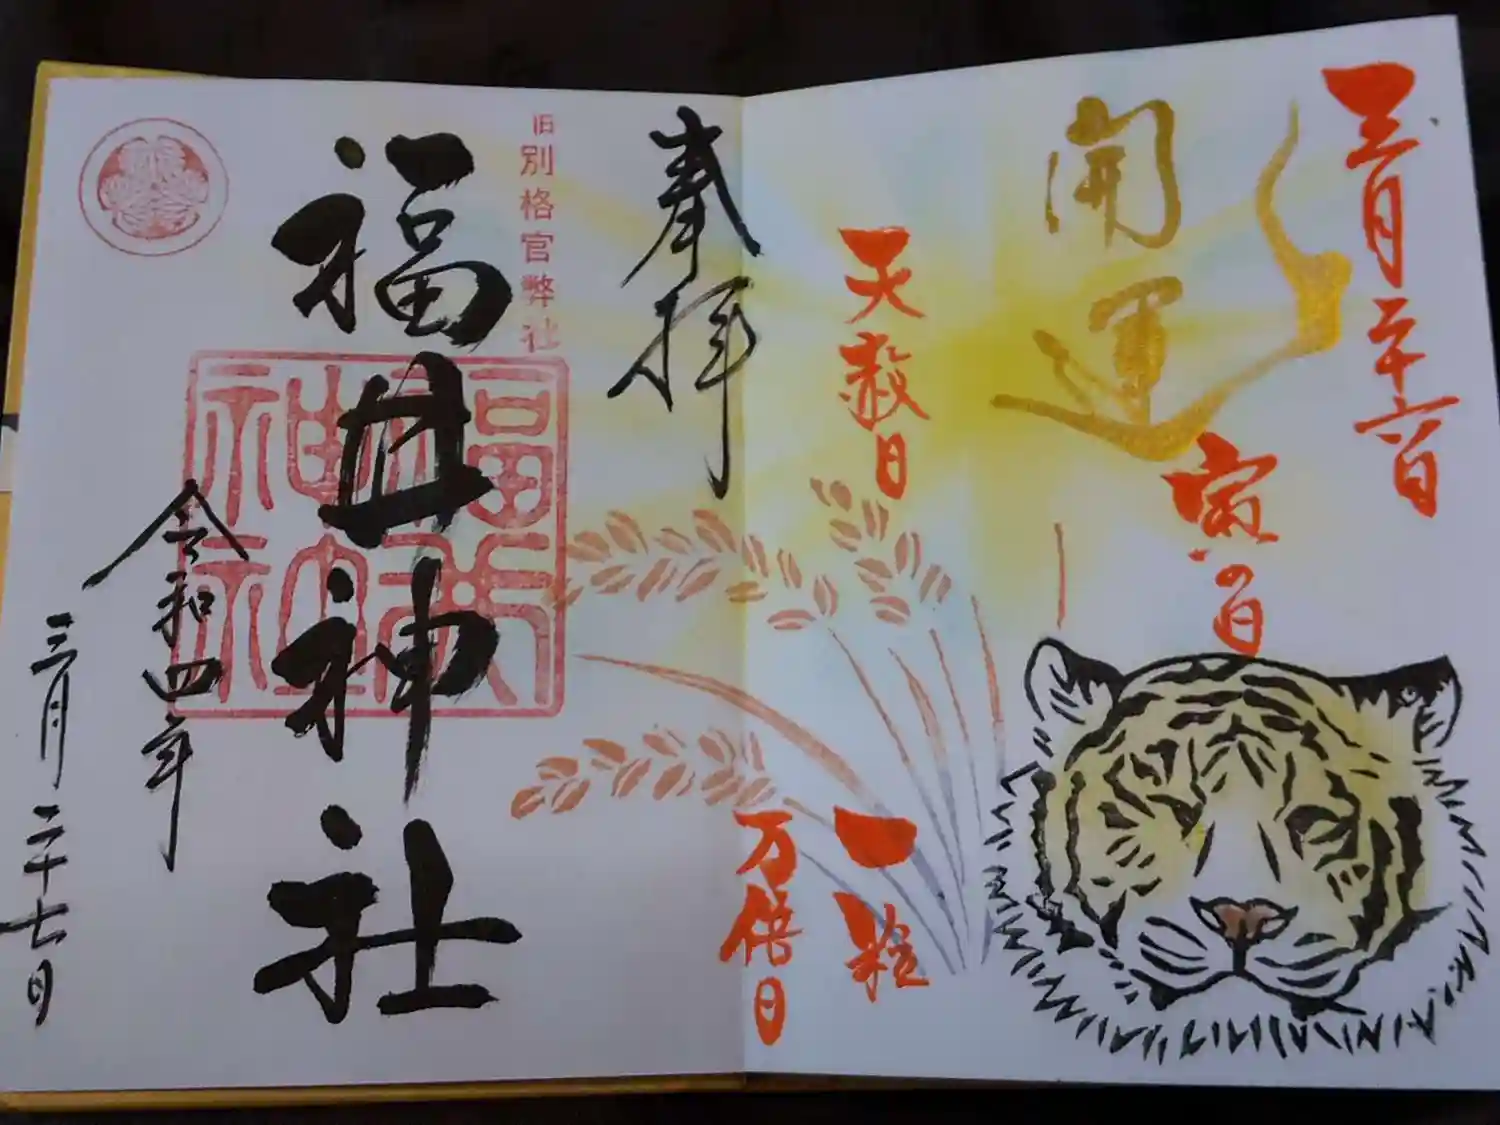 三月二十六日
開運
寅の日
天赦日
一粒
万倍日
奉拝
旧別格官幣社
福井神社
福井神社
令和四年
三月二十七日